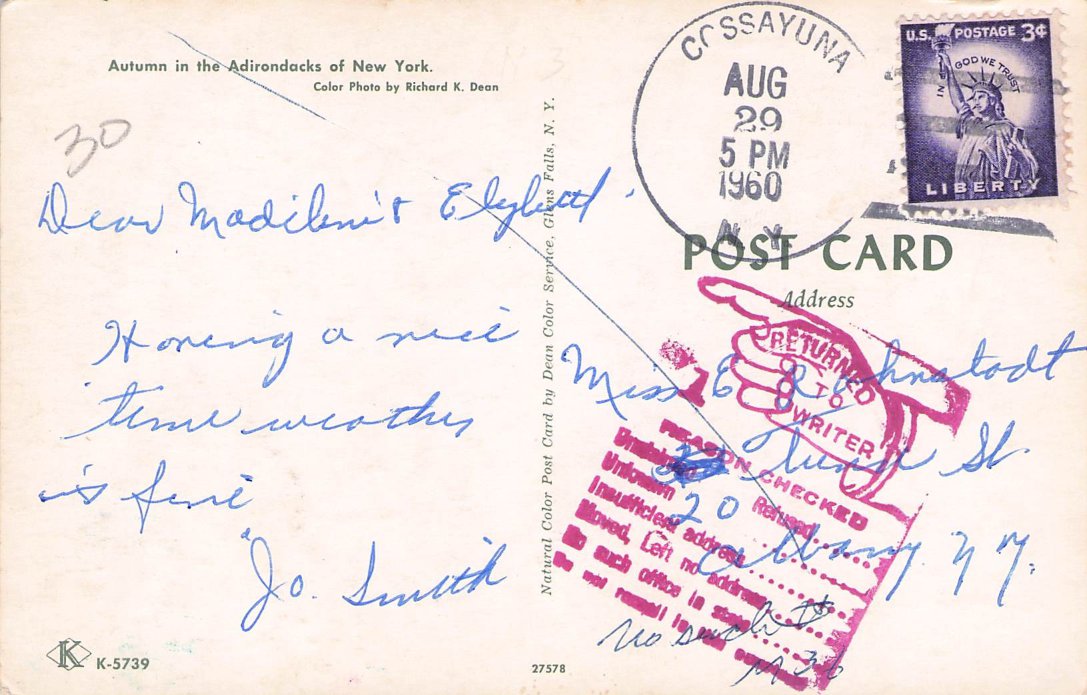 Autumn in the Adirondacks of New York.
Color Photo by Richard K. Dean
30
Dear Madiline &
Having a nice
time weather
is fine
Jo. Smith
K K-5739
Natural Color Post Card by Dean Color Service, Glens Falls, N. Y.
27578
COSSAYUNA
AUG
29
5 PM
1960
N. Y.
U.S. POSTAGE 3¢
IN GOD WE TRUST
LIBERTY
POST CARD
Address
Miss E
St.
20
Albany N Y.
RETURNED
TO
WRITER
REASON CHECKED
Unclaimed Refused
Unknown
Insufficient address
Moved, Left no address
No such office in state
Do not remail in this
No such